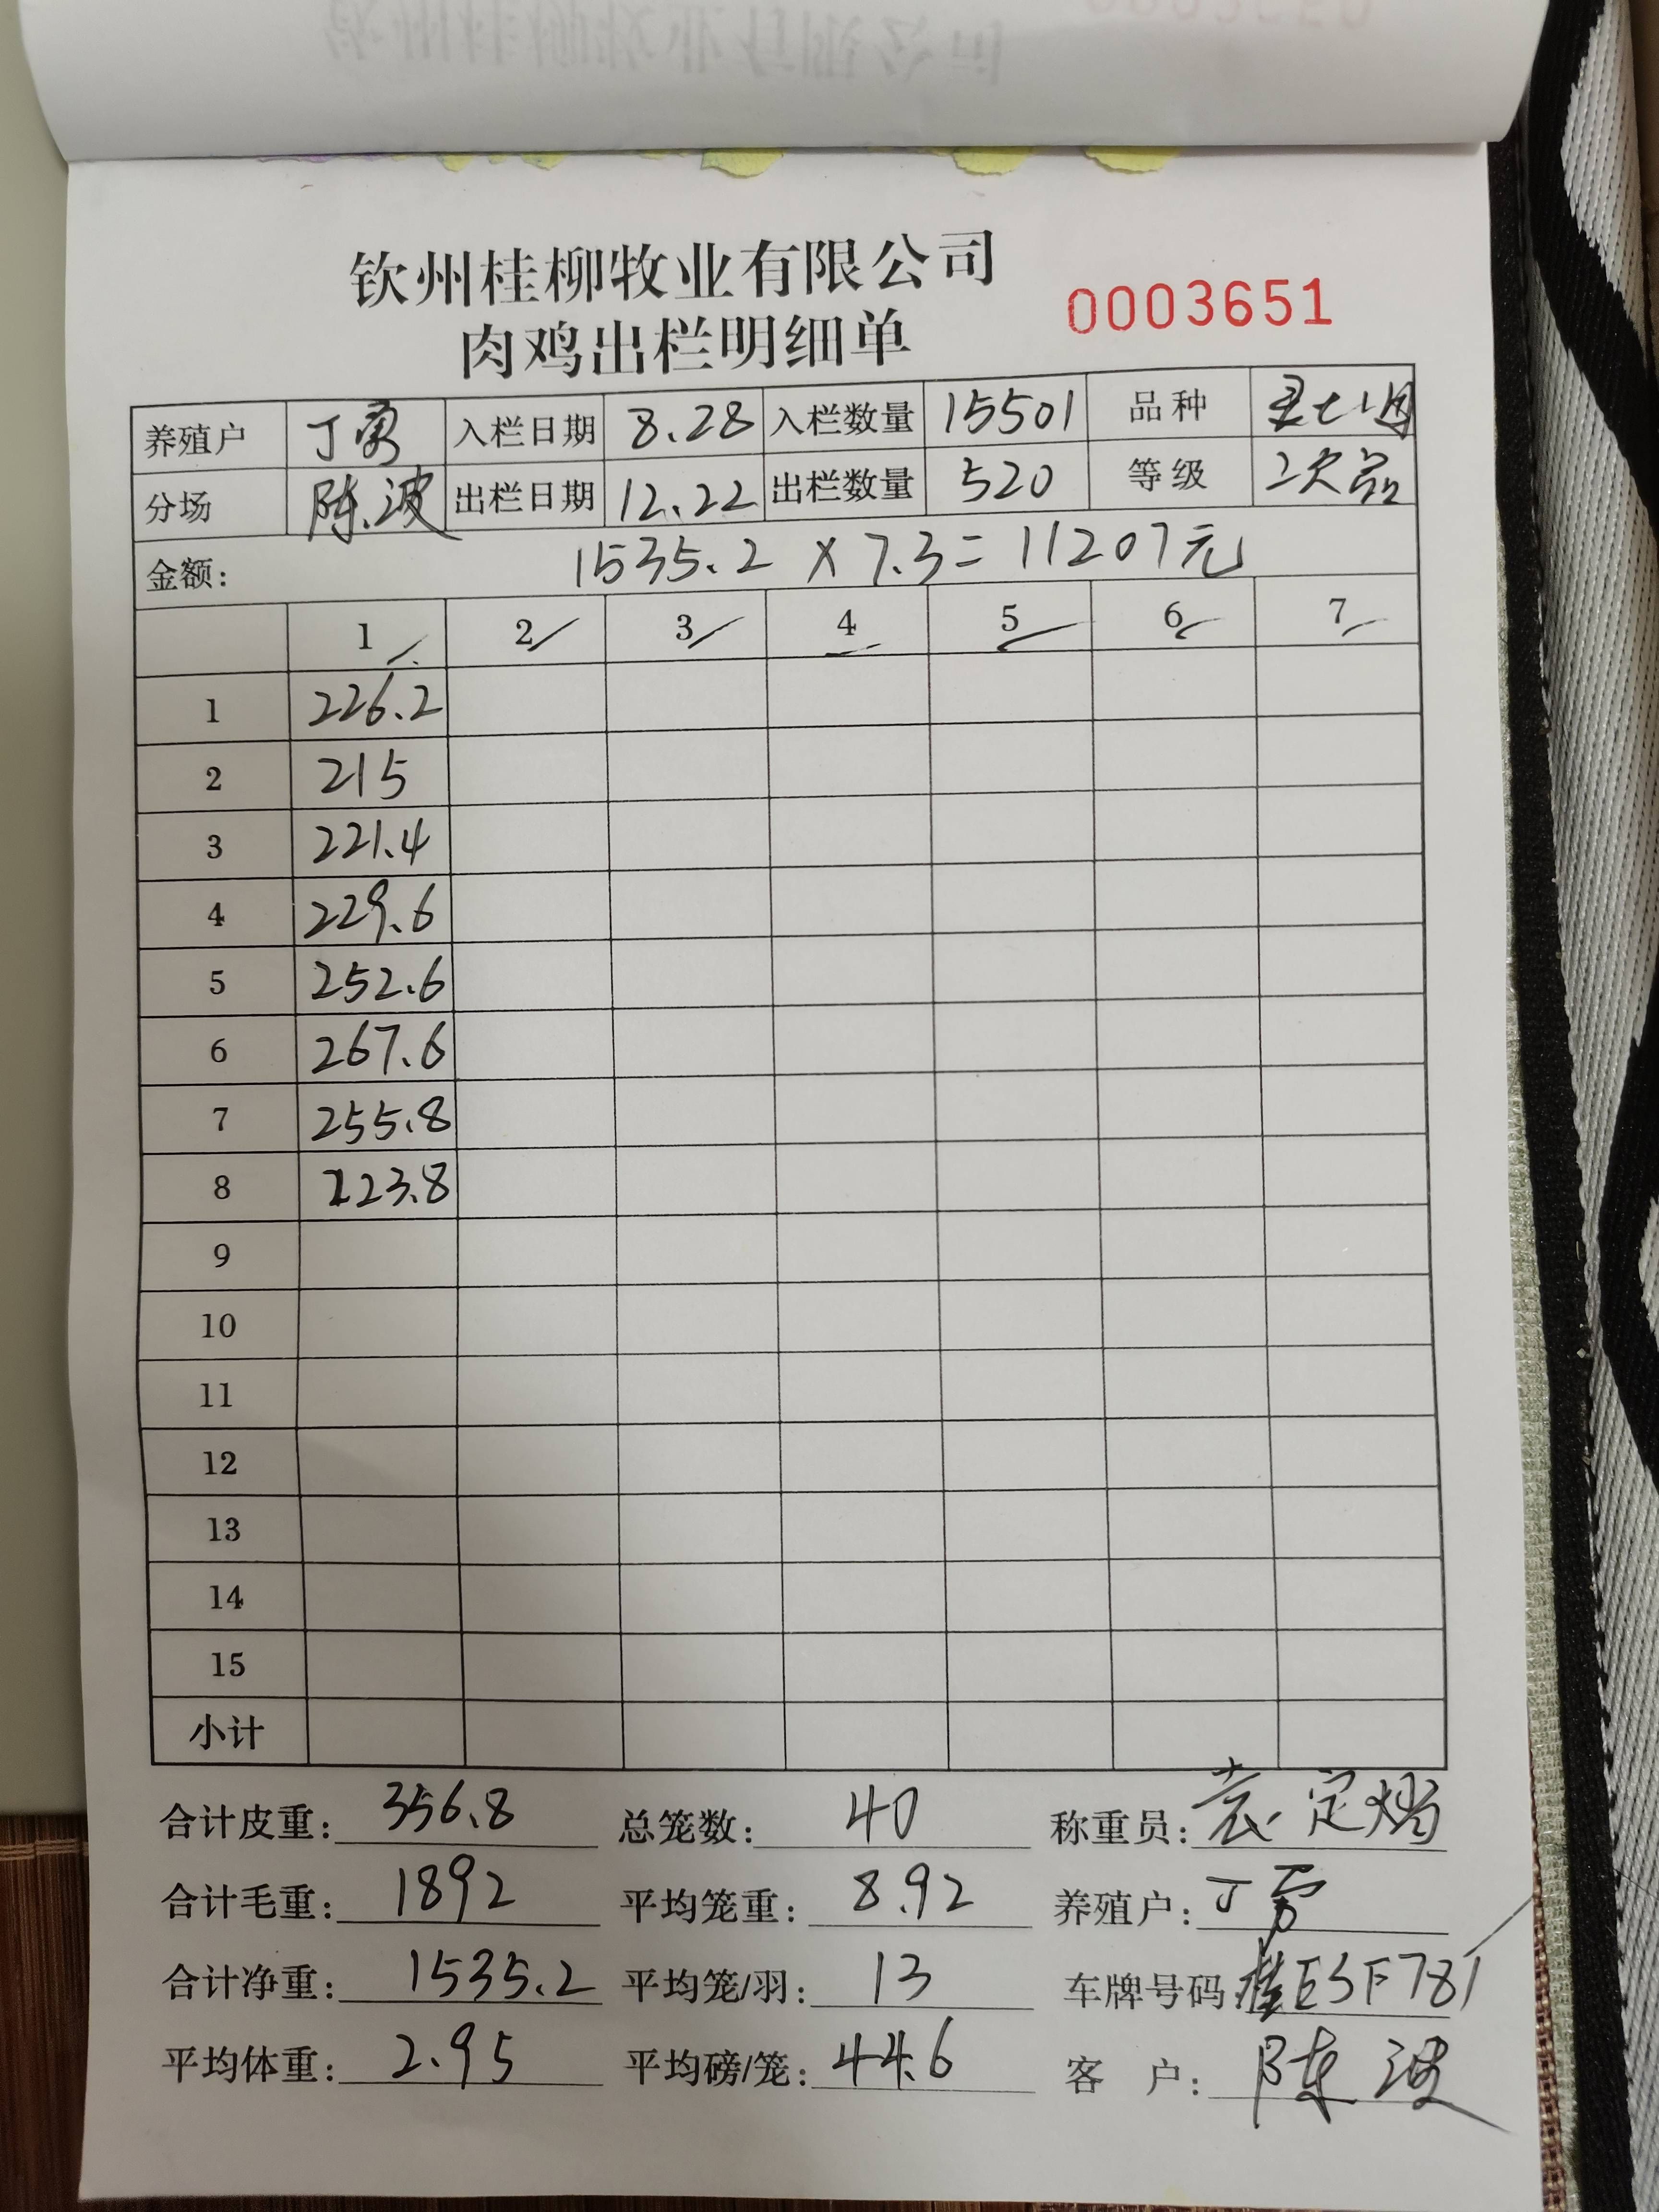 钦州桂柳牧业有限公司
肉鸡出栏明细单
0003651
养殖户 丁勇 入栏日期 8.28 入栏数量 15501 品种
分场 陈波 出栏日期 12.22 出栏数量 520 等级 次品
金额: 1535.2 × 7.3 = 11207元
1 2 3 4 5 6 7
1 226.2
2 215
3 221.4
4 229.6
5 252.6
6 267.6
7 255.8
8 223.8
9
10
11
12
13
14
15
小计
合计皮重: 356.8 总笼数: 40 称重员: 袁定
合计毛重: 1892 平均笼重: 8.92 养殖户: 丁勇
合计净重: 1535.2 平均笼/羽: 13 车牌号码: 桂ESF781
平均体重: 2.95 平均磅/笼: 44.6 客 户: 陈波